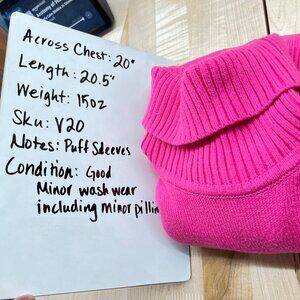 Across Chest: 20"
Length: 20.5"
Weight: 15oz
Sku: V20
Notes: Puff Sleeves
Condition: Good
Minor wash wear
including minor pillin